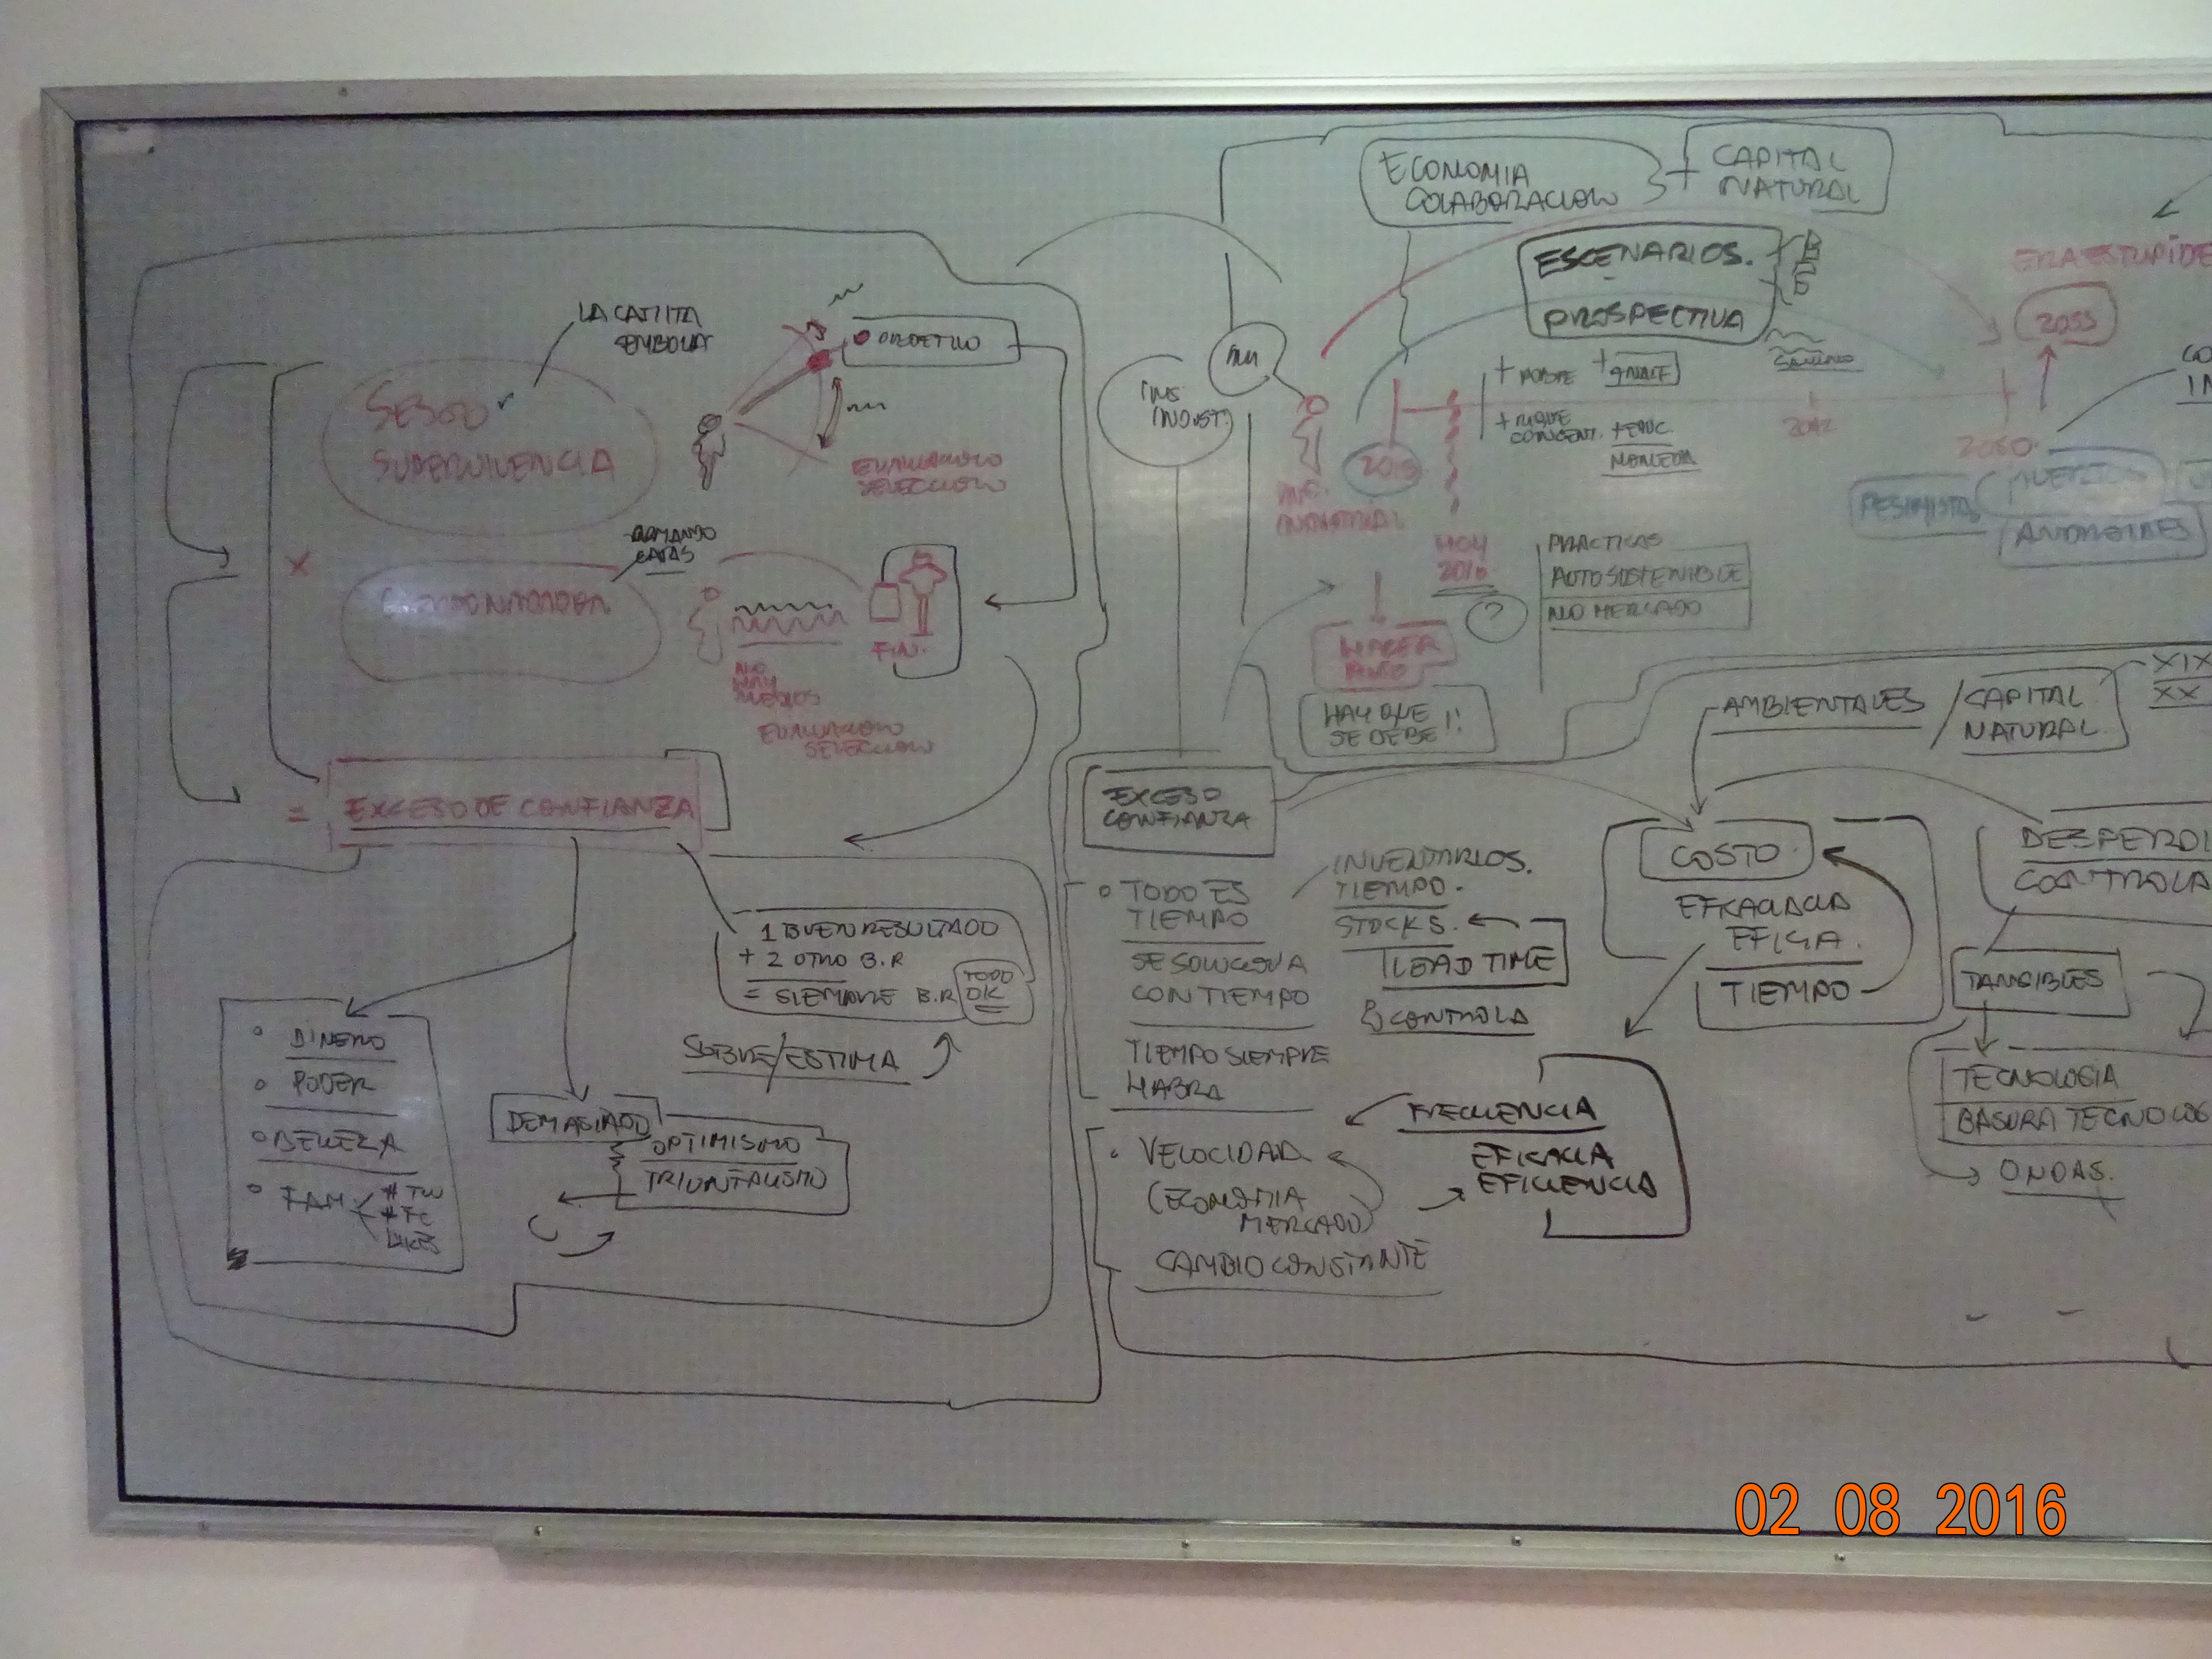 LA CARTITA
SESGO
SUPERVIVENCIA
OBJETIVO
EVALUACION
SELECCION
ARMANDO
CAPAS
X
NO
HAY
MEDIOS
FIN.
EVALUACION
SELECCION
= EXCESO DE CONFIANZA
1 BUEN RESULTADO
+ 2 OTRO B.R
= SIEMPRE B.R
TODO
OK
SOBRE/ESTIMA
DINERO
PODER
BELLEZA
FAM
# TW
# FC
LIKES
DEMASIADO
OPTIMISMO
TRIUNFALISMO
ECONOMIA
COLABORACION
+ CAPITAL
NATURAL
ESCENARIOS.
PROSPECTIVA
B
ERA ESTUPIDE
2055
ING.
INDUST.
+ POBRE
CAMINO
+ EDUC.
2050.
ING.
INDUSTRIAL
PESIMISTA
MUERTOS
ANDROIDES
HOY
2016.
?
PRACTICAS
AUTOSOSTENIBLE
NO MERCADO
HACER
ALGO
HAY QUE
SE DEBE !!
AMBIENTALES / CAPITAL
NATURAL
XIX
XX
EXCESO
CONFIANZA
TODO ES
TIEMPO
SE SOLUCIONA
CON TIEMPO
TIEMPO SIEMPRE
HABRA
INVENTARIOS.
TIEMPO.
STOCKS.
LEAD TIME
CONTROLA
COSTO
TIEMPO
DESPERDI
CONTROLA
TANGIBLES
TECNOLOGIA
BASURA TECNOLOG
ONDAS.
VELOCIDAD
(ECONOMIA
MERCADO)
CAMBIO CONSTANTE
FRECUENCIA
EFICACIA
EFICIENCIA
02 08 2016